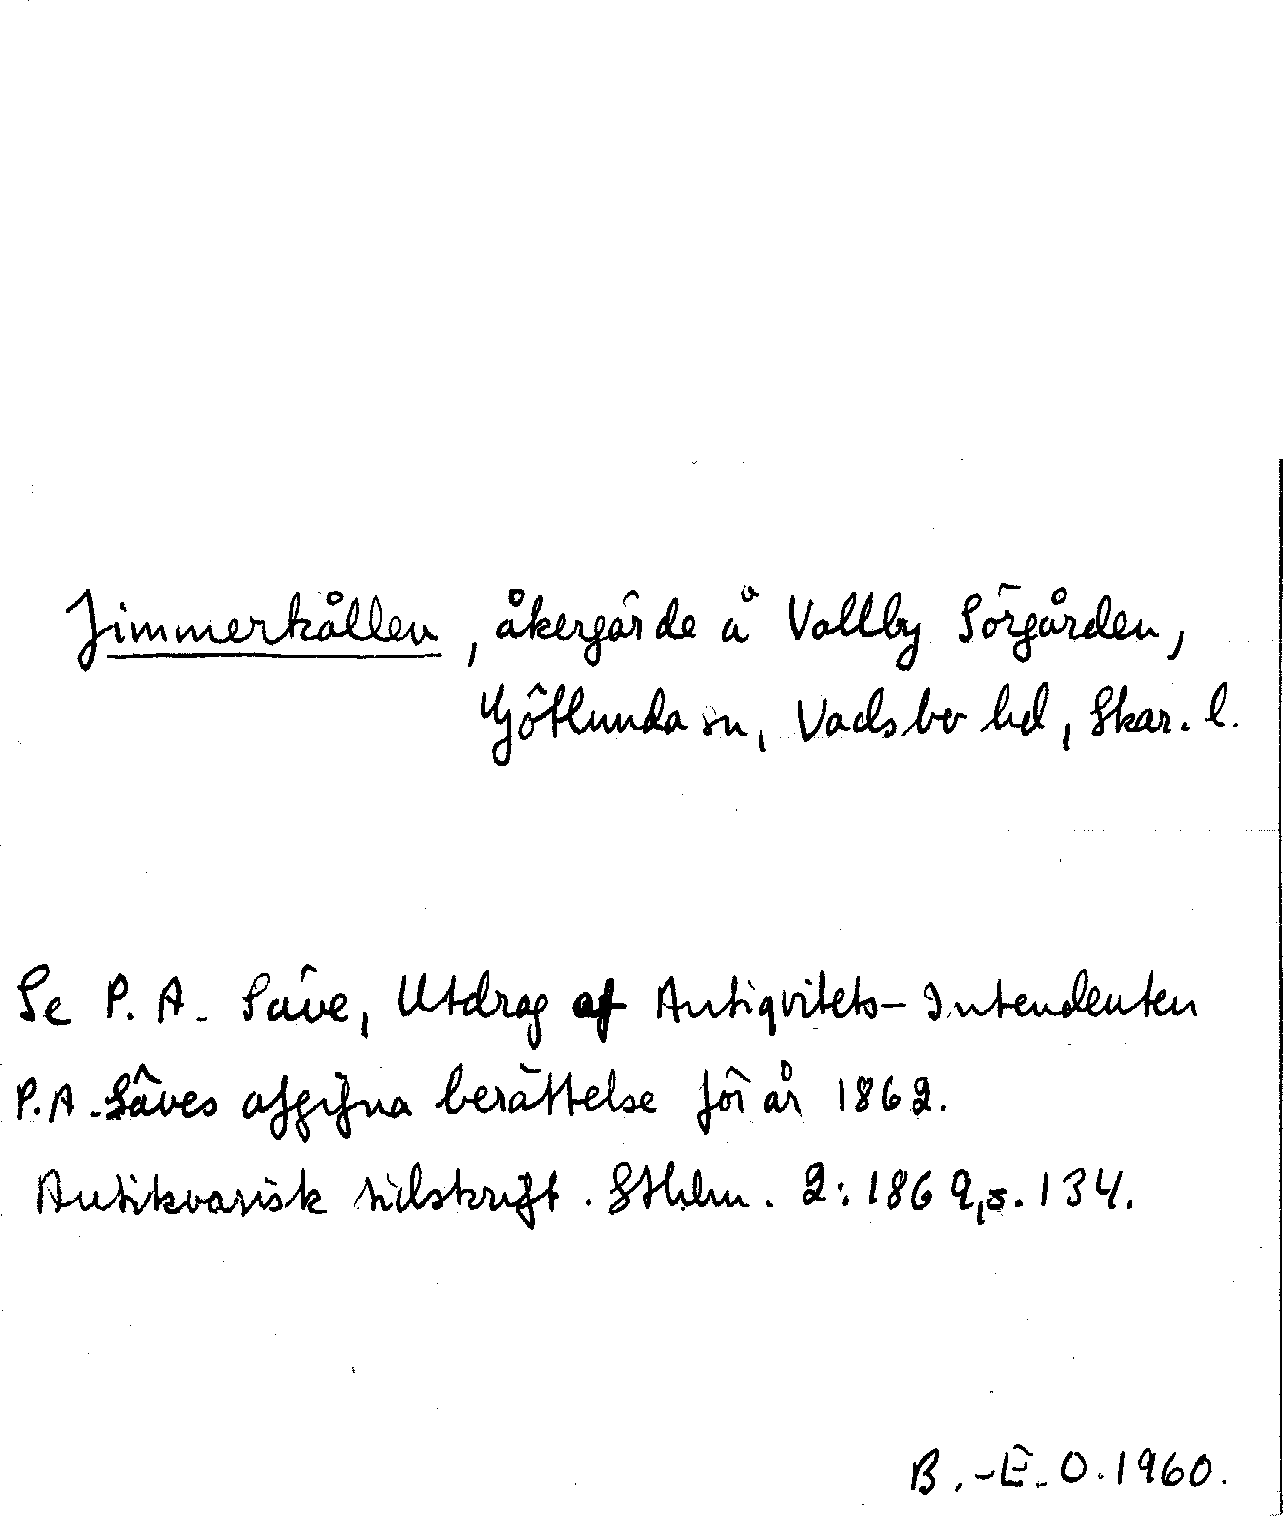 Jimmerkållen, åkergärde å Vallby Sörgården,
Götlunda sn, Vadsbo hd, Skar. l.
Se P. A. Säve, Utdrag af Antiqvitets-Intendenten
P. A. Säves afgifna berättelse för år 1862.
Antikvarisk tidskrift. Sthlm. 2:1869, s. 134.
B.-E. O. 1960.